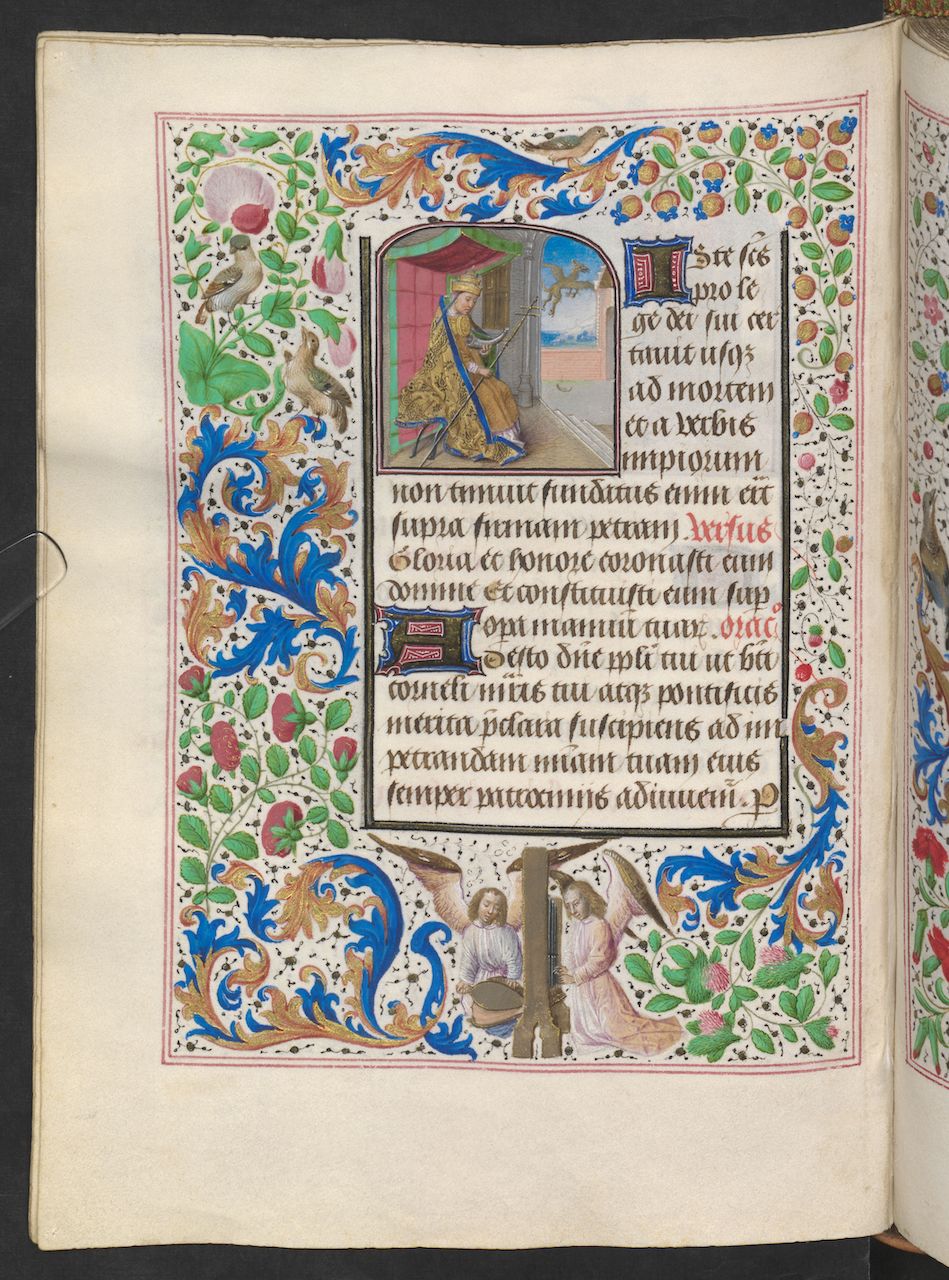 Iste scs
pro le
ge dei sui cer
tauit usqz
ad mortem
et a verbis
impiorum
non timuit fundatus enim erat
supra firmam petram. Versus
Gloria et honore coronasti eum
domine Et constituisti eum sup
opa manuu tuar. Oracio
Adesto dne ppli tui ut bti
corneli mris tui atqz pontificis
merita pclara suscipiens ad im
petrandam miam tuam eius
semper patrociniis adiuuem. P